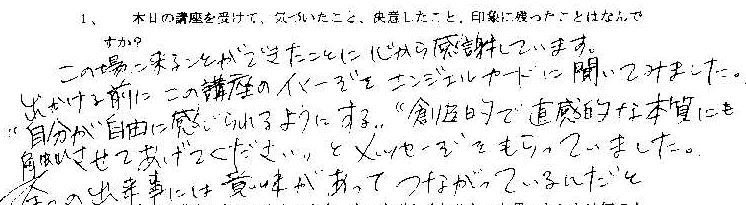 1、 本日の講座を受けて、気づいたこと、決意したこと、印象に残ったことはなんで
すか?
この場に来ることができたことに心から感謝しています。
出かける前にこの講座のイメージをエンジェルカードに聞いてみました。
"自分が自由に感じられるようにする" "創造的で直感的な本質にも
触れさせてあげてください" とメッセージをもらっていました。
の出来事には意味があってつながっているんだと